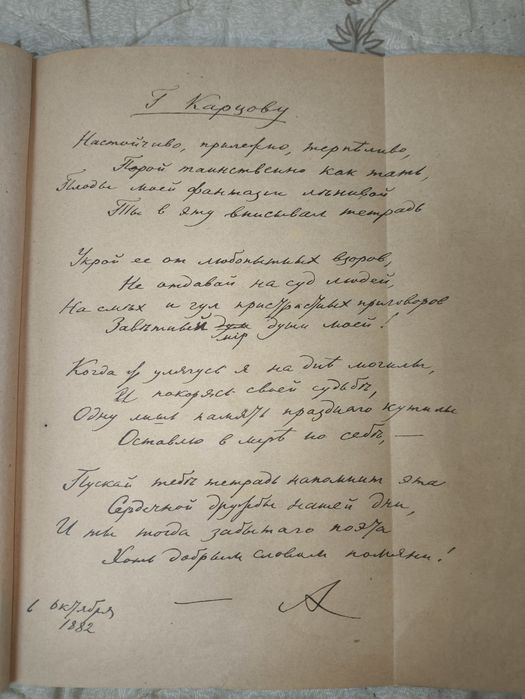 Г Карцову
Настойчиво, прилежно, терпѣливо,
Порой таинственно как тать,
Плоды моей фантазіи лѣнивой
Ты в эту вписывал тетрадь
Укрой ее от любопытных взоров,
Не отдавай на суд людей,
На смѣх и гул пристрастных приговоров
Завѣтный мір души моей!
Когда улягусь я на днѣ могилы,
И покорясь своей судьбѣ,
Одну лишь память празднаго кутилы
Оставлю в мірѣ по себѣ, —
Пускай тебѣ тетрадь напомнит эта
Сердечной дружбы нашей дни,
И ты тогда забытаго поэта
Хоть добрым словом помяни!
6 октября
1882
— А